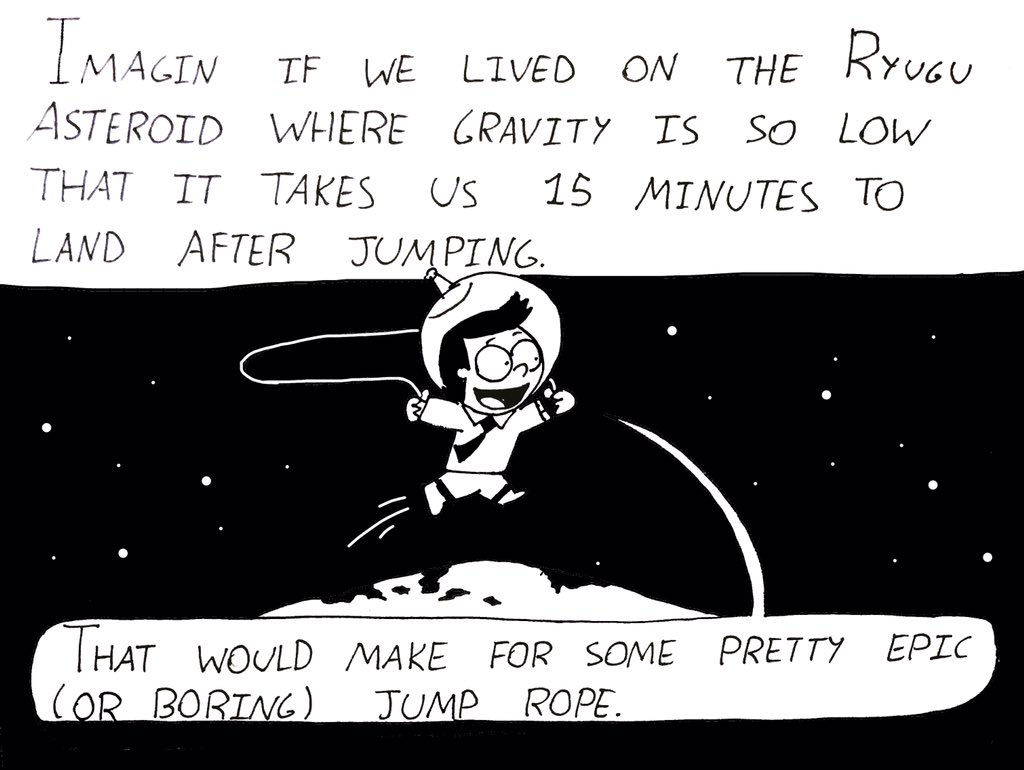 IMAGIN IF WE LIVED ON THE RYUGU
ASTEROID WHERE GRAVITY IS SO LOW
THAT IT TAKES US 15 MINUTES TO
LAND AFTER JUMPING.
THAT WOULD MAKE FOR SOME PRETTY EPIC
(OR BORING) JUMP ROPE.